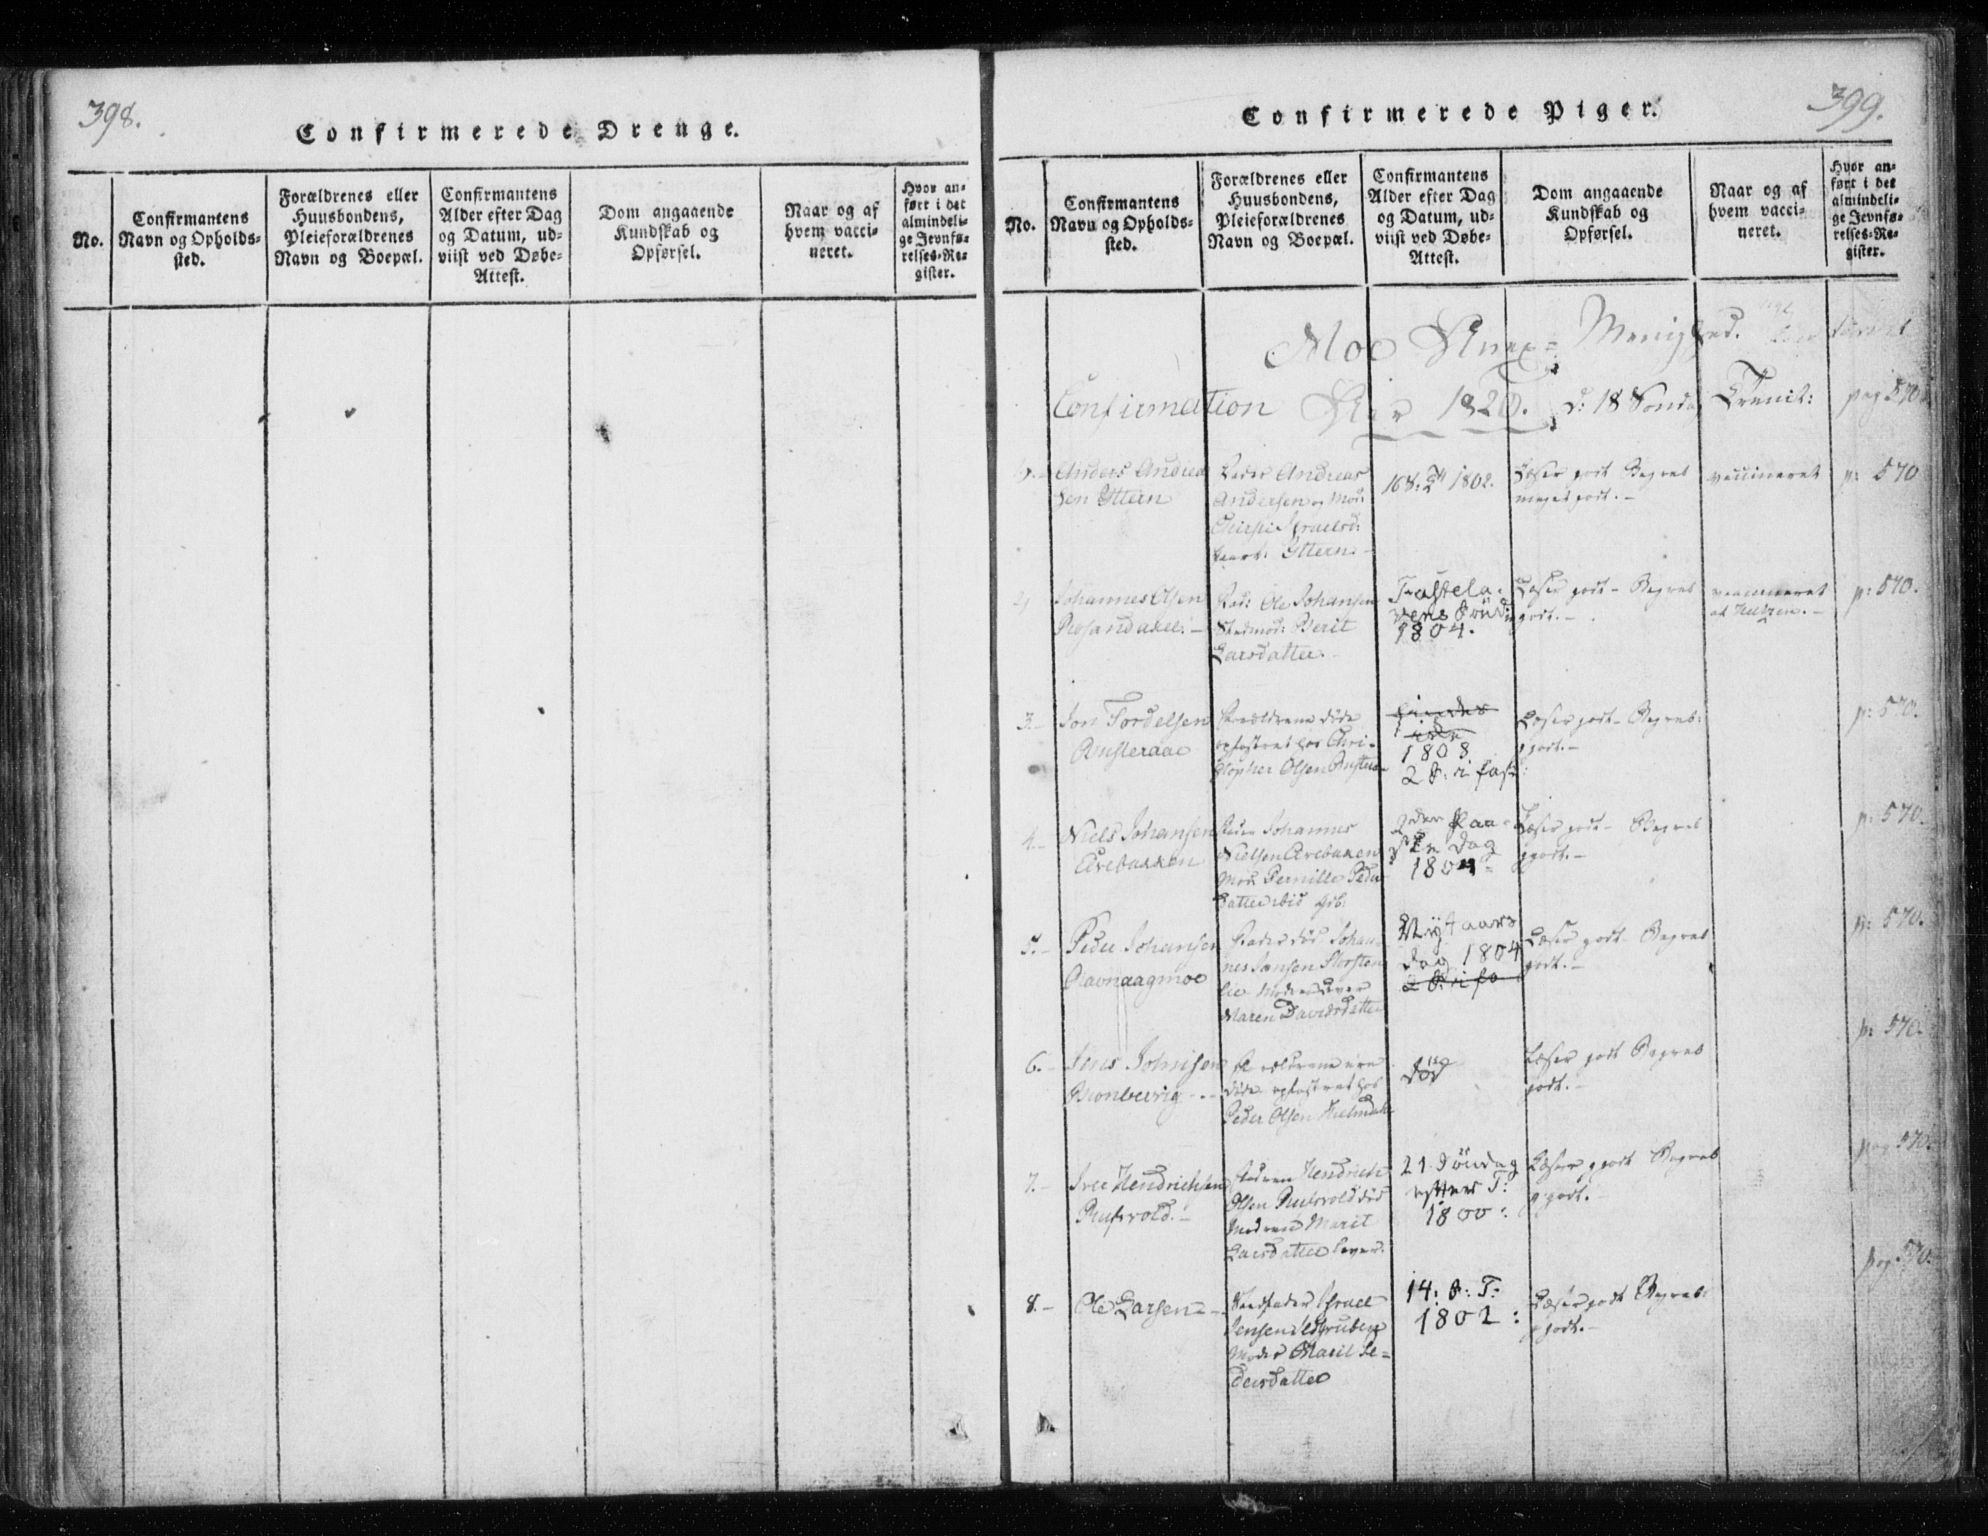 398.
Confirmerede Drenge.
No.
Confirmantens
Navn og Opholds-
sted.
Forældrenes eller
Huusbondens,
Pleieforældrenes
Navn og Boepæl.
Confirmantens
Alder efter Dag
og Datum, ud-
viist ved Døbe-
Attest.
Dom angaaende
Kundskab og
Opførsel.
Naar og af
hvem vacci-
neret.
Hvor an-
ført i det
almindeli-
ge Jevnfø-
relses-Re-
gister.
399.
Confirmerede Piger.
No.
Confirmantens
Navn og Opholds-
sted.
Forældrenes eller
Huusbondens,
Pleieforældrenes
Navn og Boepæl.
Confirmantens
Alder efter Dag
og Datum, ud-
viist ved Døbe-
Attest.
Dom angaaende
Kundskab og
Opførsel.
Naar og af
hvem vacci-
neret.
Hvor an-
ført i det
almindeli-
ge Jevnfø-
relses-Re-
gister.
Moe Anex- Menighed.
Confirmation Aar 1820. d: 18 Søndag Trinit: pag 570
Anders Andrea
sen Yttern
Fader Andreas
Andersen og Mod:
Israelsd:
Yttern
1802.
Læser godt Begreb
meget godt.-
vaccineret
p: 570
2
Johannes Olsen
Røsandaxel.-
Fad: Ole Johansen
Stedmod: Berit
Larsdatter.-
Fastela-
vens Sönd:
1804.
Læser godt- Begreb
godt.-
vaccineret
af
p: 570.
3.-
Jon Tordelsen
Ansteraae
Forældrene døde
opfostret hos Chri-
stopher Olsen
1803
2 S: i Fast:
Læser godt- Begreb:
godt.-
p: 570.
4.-
Niels Johansen
Arebakken
Fader Johannes
Nielsen Arebaken
Mod: Pernille Peder
datter ibid
2den Paa-
ske Dag
1804-
Læser godt- Begreb
godt.-
p: 570.
5.-
Peder Johansen
Ravnaagmoe
Fader død Johan
nes Jansen
lie Moder lever
Maren Davidsdatter
Nytaars
dag 1804
2 S: i fa
Læser godt- Begreb
godt.-
p: 570.
6.-
Forældrene ere
døde opfostret hos
Peder Olsen
död
Læser godt Begreb
godt.-
p: 570.
7.-
Iver Hendrichsen
Rusvold.-
Faderen Hendrich
Olsen Rusvold død
Moderen Marit
Larsdatter lever.
21. Söndag
efter T:
1800:
Læser godt Begreb
godt.-
pag 570.
8.-
Ole Larsen -
Stedfader Israel
Jensen
Moder Marit Pe-
dersdatter
14: S: T:
1802:
Læser godt Begreb
godt.-
pag 570.